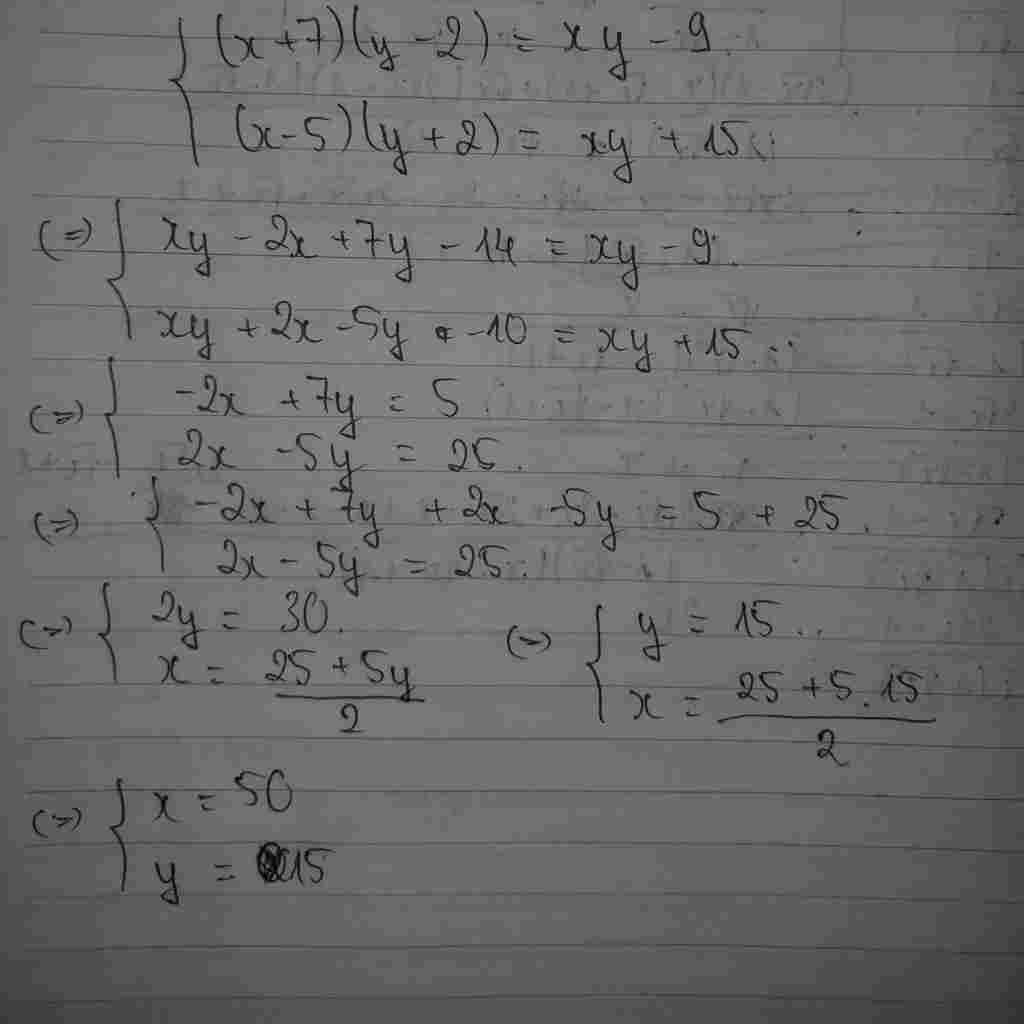 (x+7)(y-2) = xy - 9
(x-5)(y+2) = xy + 15
(=) xy - 2x + 7y - 14 = xy - 9
xy + 2x - 5y - 10 = xy + 15
(=) -2x + 7y = 5
2x - 5y = 25
(=) -2x + 7y + 2x - 5y = 5 + 25
2x - 5y = 25
(=) 2y = 30
x = (25 + 5y)/2
(=) y = 15
x = (25 + 5.15)/2
(=) x = 50
y = 15